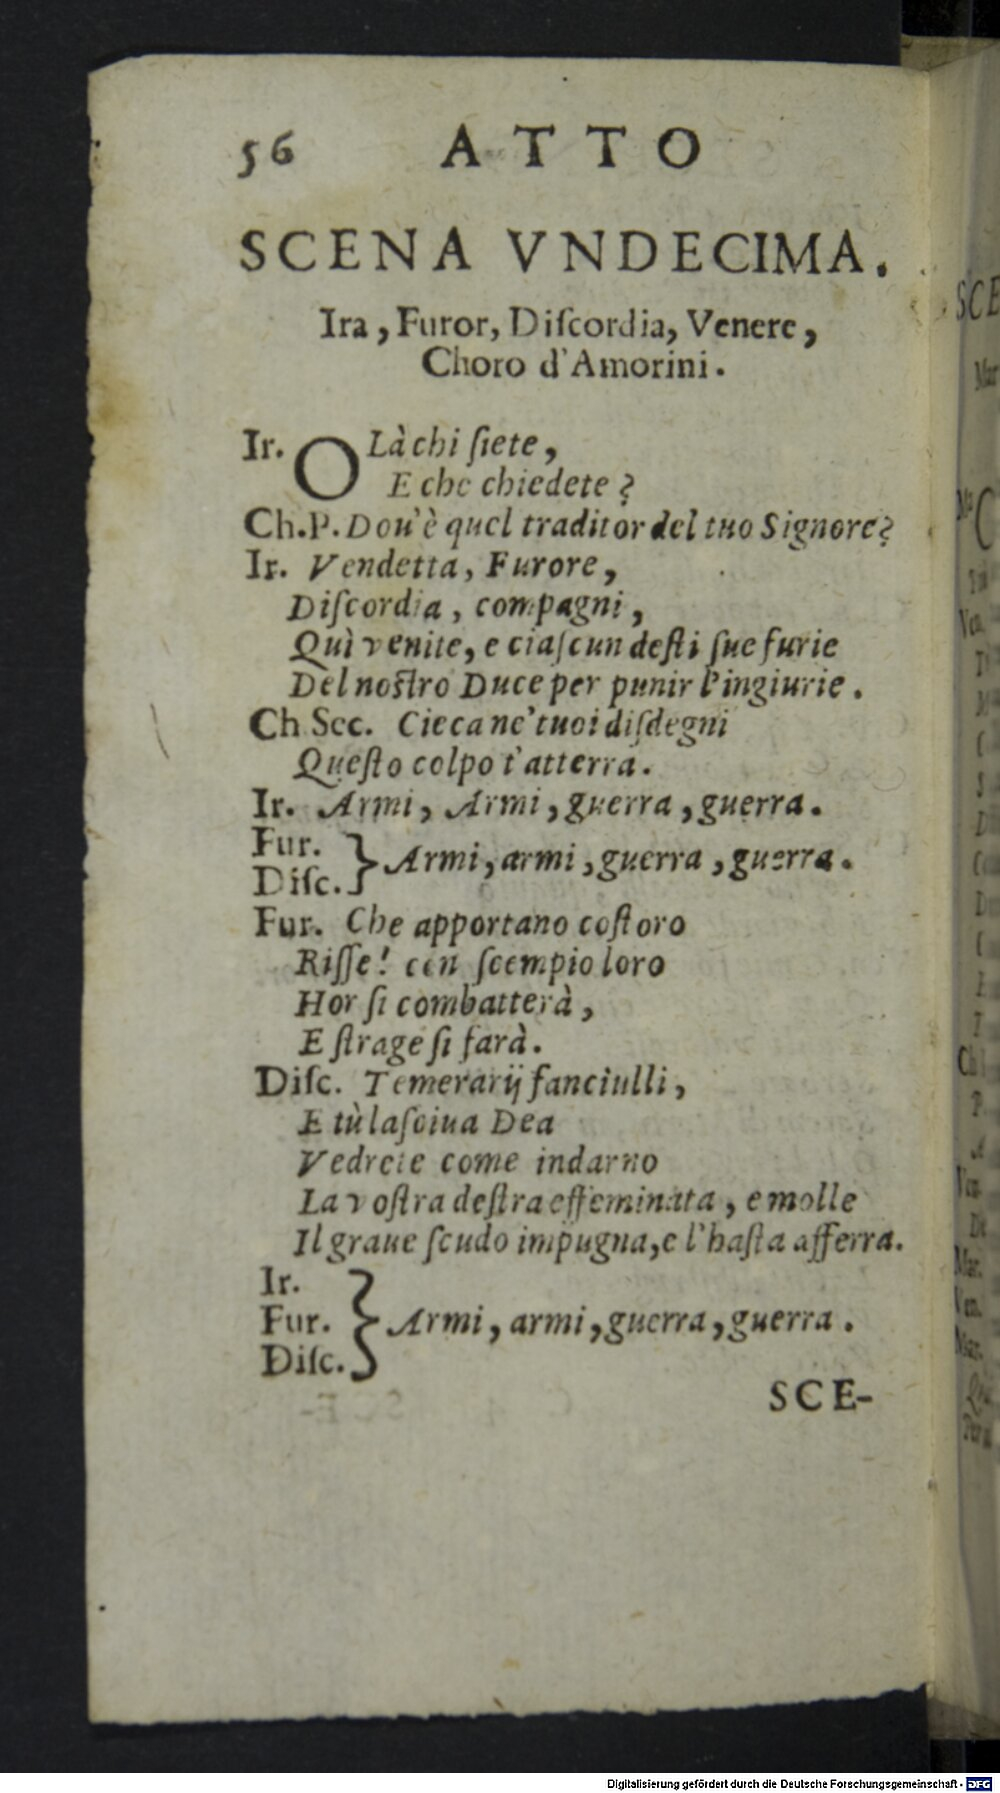 56 ATTO
SCENA VNDECIMA.
Ira, Furor, Diſcordia, Venere,
Choro d'Amorini.
Ir. OLà chi ſiete,
E che chiedete?
Ch.P. Dou'è quel traditor del tuo Signore?
Ir. Vendetta, Furore,
Diſcordia, compagni,
Quì venite, e ciaſcun deſti ſue furie
Del noſtro Duce per punir l'ingiurie.
Ch Sec. Cieca ne' tuoi diſdegni
Queſto colpo t'atterra.
Ir. Armi, Armi, guerra, guerra.
Fur.
Diſc. } Armi, armi, guerra, guerra.
Fur. Che apportano coſtoro
Riſſe! con ſcempio loro
Hor ſi combatterà,
E ſtrage ſi farà.
Diſc. Temerarij fanciulli,
E tù laſciua Dea
Vedrete come indarno
La voſtra deſtra effeminata, e molle
Il graue ſcudo impugna, e l'haſta afferra.
Ir.
Fur. } Armi, armi, guerra, guerra.
Diſc.
SCE-
Digitalisierung gefördert durch die Deutsche Forschungsgemeinschaft - DFG